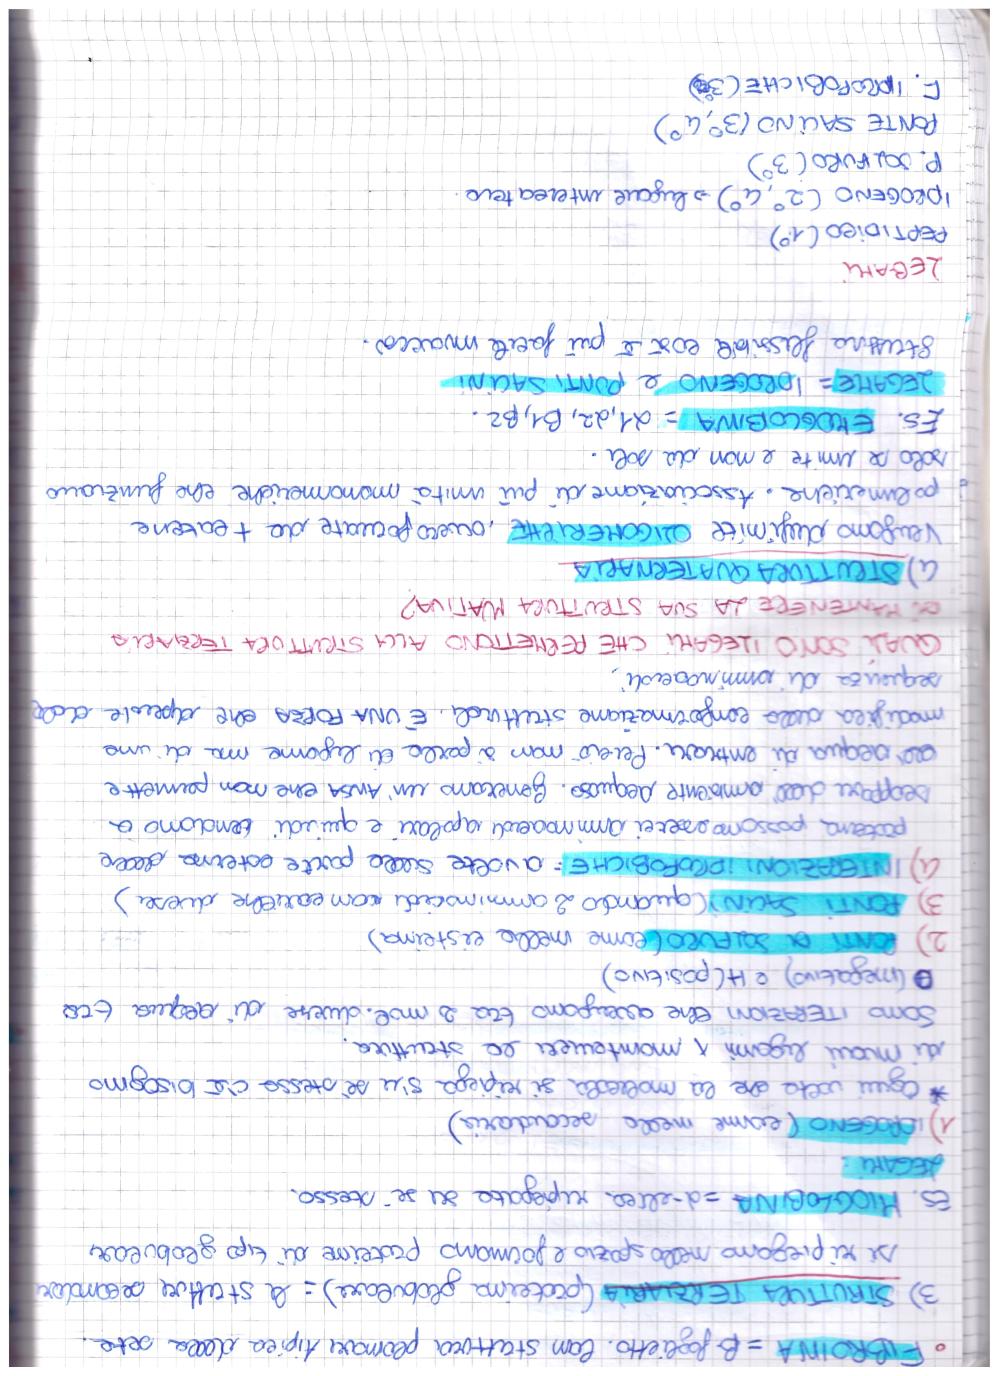 • FIBROINA = β foglietto. Con struttura planare tipica della seta.
3) STRUTTURA TERZIARIA (proteina globulare) = le strutture secondarie
si ripiegano nello spazio e formano proteine di tipo globulare
ES. MIOGLOBINA = α-elica ripiegata su se stessa.
LEGAMI:
1) IDROGENO (come nella secondaria)
* Ogni volta che la molecola si ripiega s'u se stessa c'è bisogno
di nuovi legami x mantenere la struttura.
SONO ITERAZIONI che avvengono tra 2 mol. diverse di acqua tra
(negativo) e H (positivo)
2) PONTI di SOLFURO (come nella cisteina)
3) PONTI SALINI (quando 2 amminoacidi con cariche diverse)
4) INTERAZIONI IDROFOBICHE: a volte sulla parte esterna della
proteina possono esserci amminoacidi apolari e quindi tendono a
scappare dall'ambiente acquoso. Generano un'ANSA che non permette
all'acqua di entrare. Perciò non si parla di legame ma di una
modifica della conformazione strutturale. È UNA FORZA che dipende dalla
sequenza di amminoacidi.
QUALI SONO I LEGAMI CHE PERMETTONO ALLA STRUTTURA TERZIARIA
DI MANTENERE LA SUA STRUTTURA NATIVA?
4) STRUTTURA QUATERNARIA
Vengono definite OLIGOMERICHE, ovvero formate da + catene
polimeriche. Associazione di più unità monomeriche che funzionano
solo se unite e non da sole.
ES. EMOGLOBINA = α1, α2, β1, β2.
LEGAME = IDROGENO e PONTI SALINI
Struttura flessibile così è più facile muoversi.
LEGAMI
PEPTIDICO (1°)
IDROGENO (2°, 4°) → legame intercatena
P. SOLFURO (3°)
PONTE SALINO (3°, 4°)
F. IDROFOBICHE (3°)